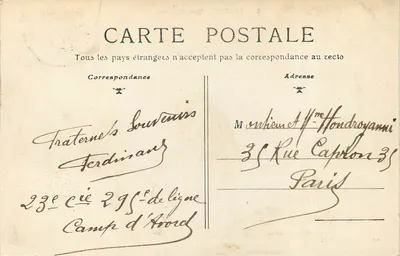 CARTE POSTALE
Tous les pays étrangers n'acceptent pas la correspondance au recto
Correspondance
Adresse
Fraternels Souvenirs
Ferdinand
23e cie 295e de ligne
Camp d'Avord
Monsieur et Mme Hondroyanni
35 Rue Capron 35
Paris